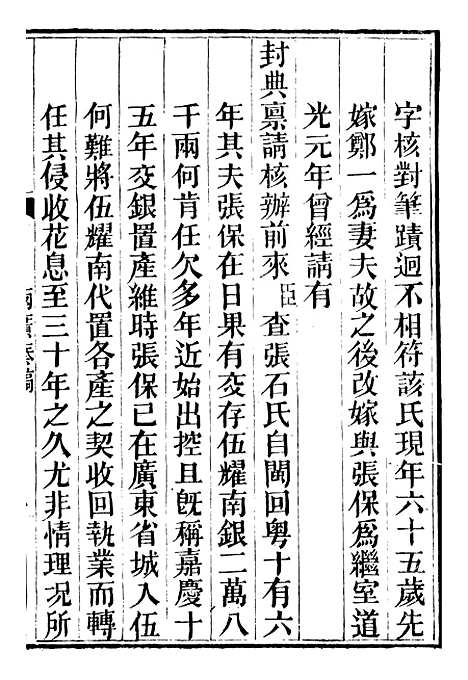 字核對筆蹟迥不相符該氏現年六十五歲先
嫁鄭一爲妻夫故之後改嫁與張保爲繼室道
光元年曾經請有
封典禀請核辦前來臣查張石氏自閩回粵十有六
年其夫張保在日果有交存伍耀南銀二萬八
千兩何肯任欠多年近始出控且旣稱嘉慶十
五年交銀置產維時張保已在廣東省城入伍
何難將伍耀南代置各產之契收回執業而轉
任其侵收花息至三十年之久尤非情理况所
兩廣奏稿